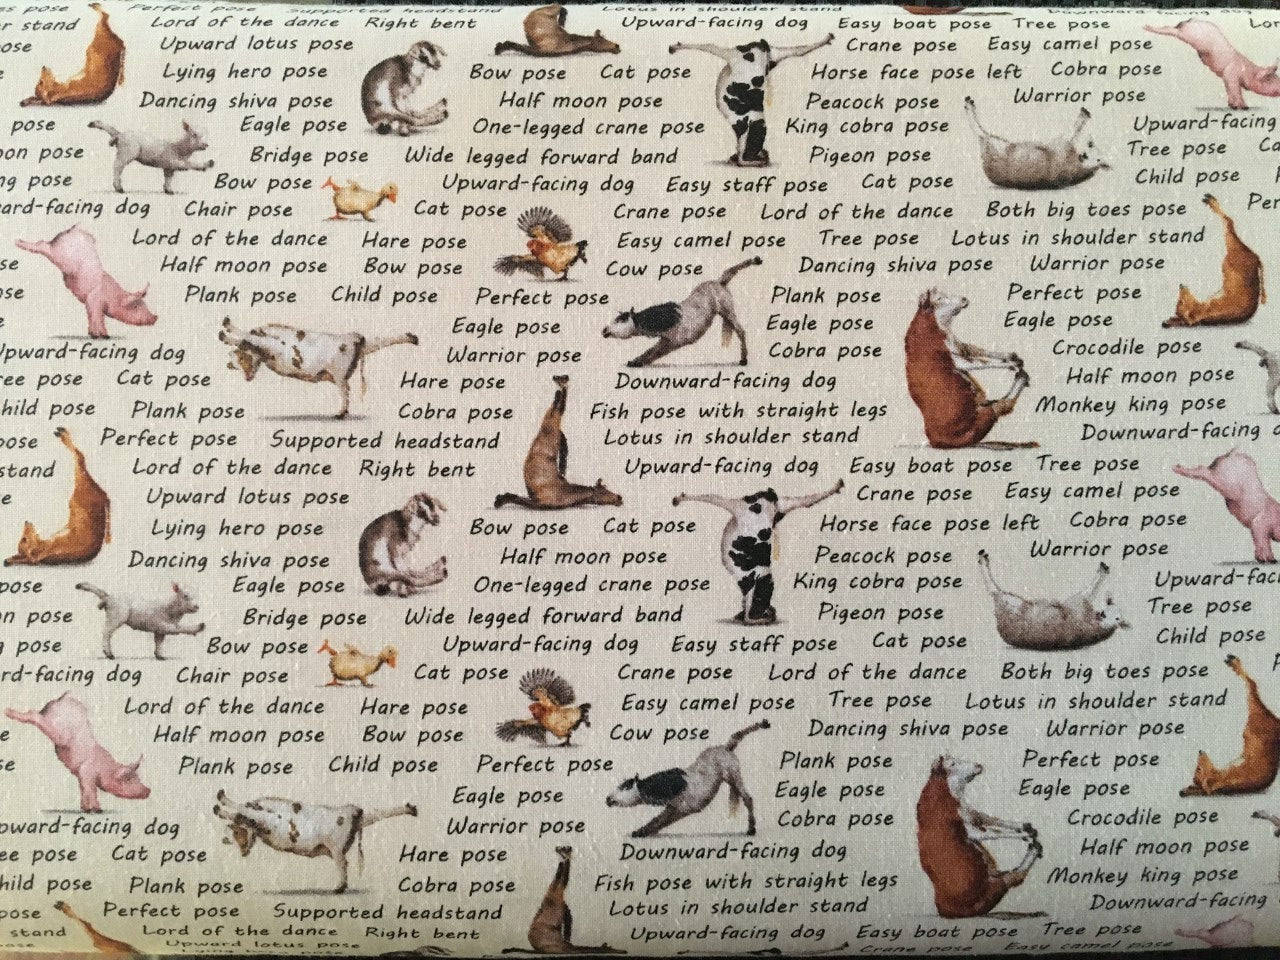 es pose Perfect pose Supported headstand Lotus in shoulder stand Downward-facing dog
r stand Lord of the dance Right bent Upward-facing dog Easy boat pose Tree pose
ose Upward lotus pose Crane pose Easy camel pose
Lying hero pose Bow pose Cat pose Horse face pose left Cobra pose
Dancing shiva pose Half moon pose Peacock pose Warrior pose
pose Eagle pose One-legged crane pose King cobra pose Upward-facing
oon pose Bridge pose Wide legged forward band Pigeon pose Tree pose Ca
ng pose Bow pose Upward-facing dog Easy staff pose Cat pose Child pose
ard-facing dog Chair pose Cat pose Crane pose Lord of the dance Both big toes pose Per
Lord of the dance Hare pose Easy camel pose Tree pose Lotus in shoulder stand
se Half moon pose Bow pose Cow pose Dancing shiva pose Warrior pose
se Plank pose Child pose Perfect pose Plank pose Perfect pose
Eagle pose Eagle pose Eagle pose
Upward-facing dog Warrior pose Cobra pose Crocodile pose
ree pose Cat pose Hare pose Downward-facing dog Half moon pose
hild pose Plank pose Cobra pose Fish pose with straight legs Monkey king pose
pose Perfect pose Supported headstand Lotus in shoulder stand Downward-facing d
stand Lord of the dance Right bent Upward-facing dog Easy boat pose Tree pose
e Upward lotus pose Crane pose Easy camel pose
Lying hero pose Bow pose Cat pose Horse face pose left Cobra pose
Dancing shiva pose Half moon pose Peacock pose Warrior pose
pose Eagle pose One-legged crane pose King cobra pose Upward-faci
n pose Bridge pose Wide legged forward band Pigeon pose Tree pose
g pose Bow pose Upward-facing dog Easy staff pose Cat pose Child pose
rd-facing dog Chair pose Cat pose Crane pose Lord of the dance Both big toes pose P
Lord of the dance Hare pose Easy camel pose Tree pose Lotus in shoulder stand
e Half moon pose Bow pose Cow pose Dancing shiva pose Warrior pose
se Plank pose Child pose Perfect pose Plank pose Perfect pose
Eagle pose Eagle pose Eagle pose
pward-facing dog Warrior pose Cobra pose Crocodile pose
ee pose Cat pose Hare pose Downward-facing dog Half moon pose
hild pose Plank pose Cobra pose Fish pose with straight legs Monkey king pose
pose Perfect pose Supported headstand Lotus in shoulder stand Downward-facing
stand Lord of the dance Right bent Upward-facing dog Easy boat pose Tree pose
ose Upward lotus pose Crane pose Easy camel pose